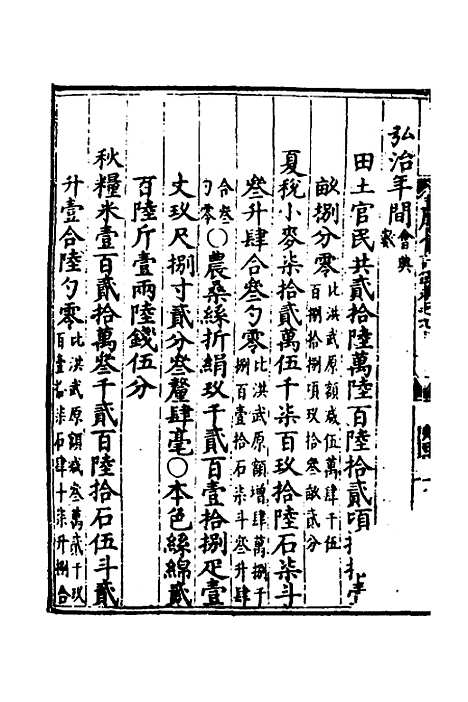 弘治年間會典數
田土官民共貳拾陸萬陸百陸拾貳頃
畝捌分零比洪武原額減伍萬肆千伍百捌拾捌頃玖拾叁畝貳分
夏稅小麥柒拾貳萬伍千柒百玖拾陸石柒斗
叁升肆合叁勺零比洪武原額增肆萬捌千捌百壹拾石柒斗叁升肆
合叁勺零〇農桑絲折絹玖千貳百壹拾捌疋壹
丈玖尺捌寸貳分叁釐肆毫〇本色絲綿貳
百陸斤壹兩陸錢伍分
秋糧米壹百貳拾萬叁千貳百陸拾石伍斗貳
升壹合陸勺零比洪武原額減叁萬貳千玖百壹拾柒石肆斗柒升捌合